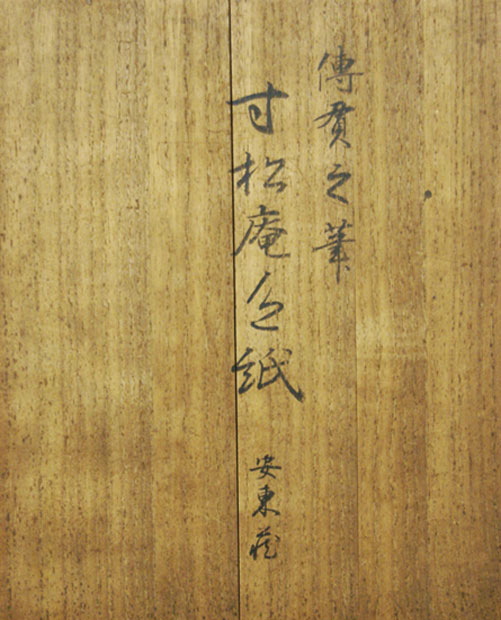 傳貫之筆
寸松庵色紙
安東蔵